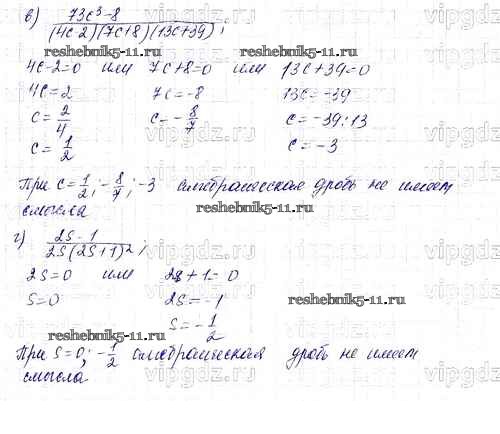 в) (73c³-8)/((4c-2)(7c+8)(13c+39)) ;
reshebnik5-11.ru
4c-2=0 или 7c+8=0 или 13c+39=0
4c=2 7c=-8 13c=-39
c=2/4 c=-8/7 c=-39:13
c=1/2 c=-3
При c=1/2; -8/7; -3 алгебраическая дробь не имеет
смысла
reshebnik5-11.ru
г) (2s-1)/(2s(2s+1)²) ;
2s=0 или 2s+1=0
s=0 2s=-1
reshebnik5-11.ru
s=-1/2
reshebnik5-11.ru
При s=0; -1/2 алгебраическая дробь не имеет
смысла.
vipgdz.ru